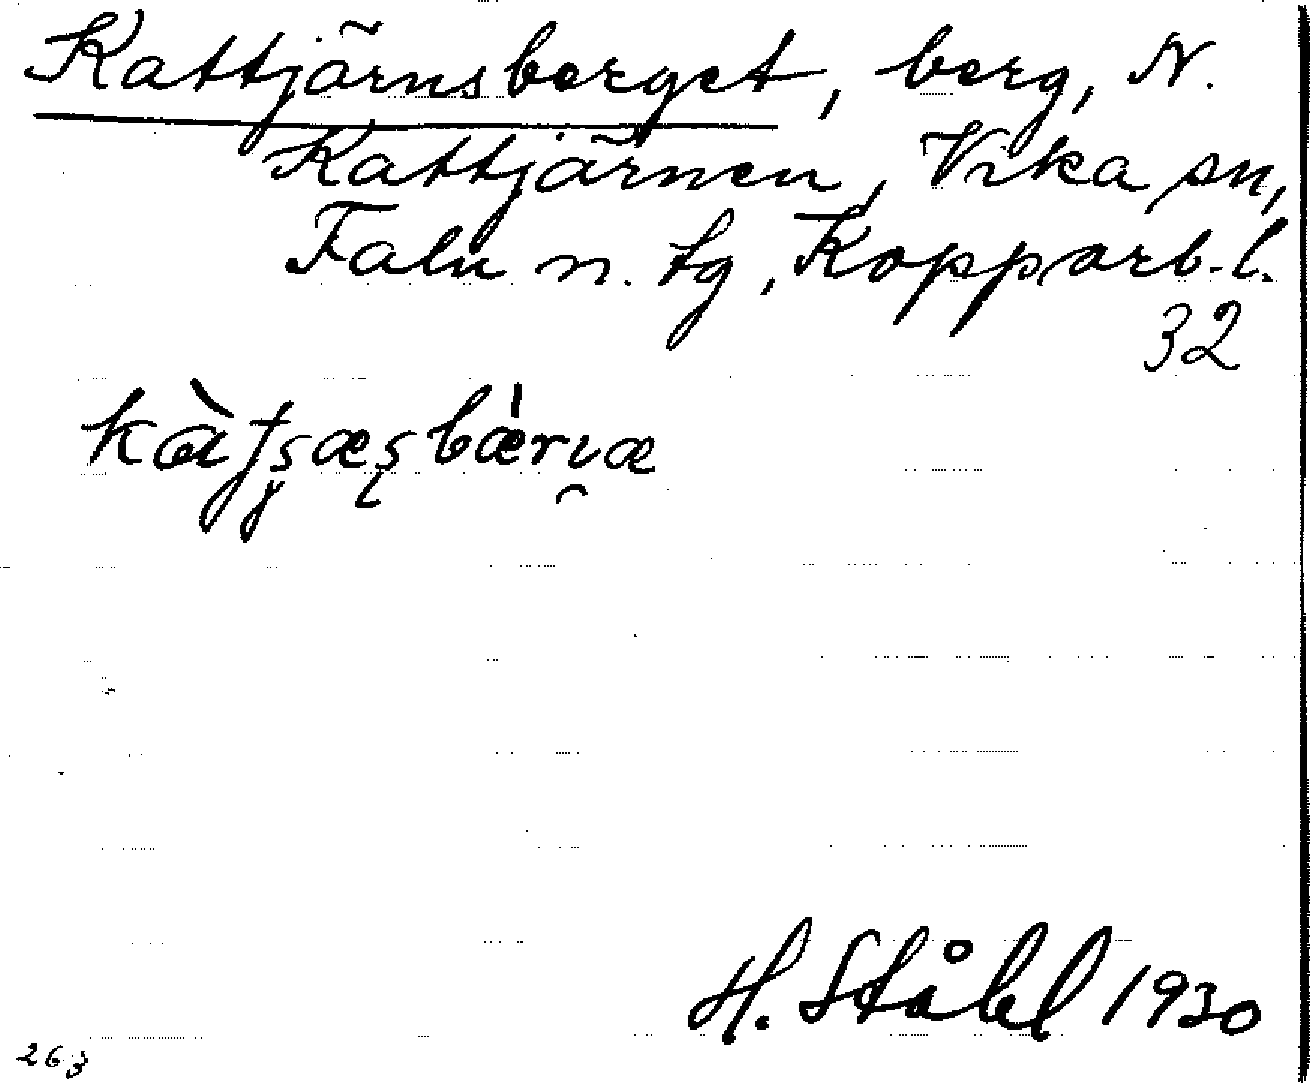 Kattjärnsberget, berg, N.
Kattjärnen, Vika sn,
Falu n. tg, Kopparb. l.
32
H. Ståhl 1930
263